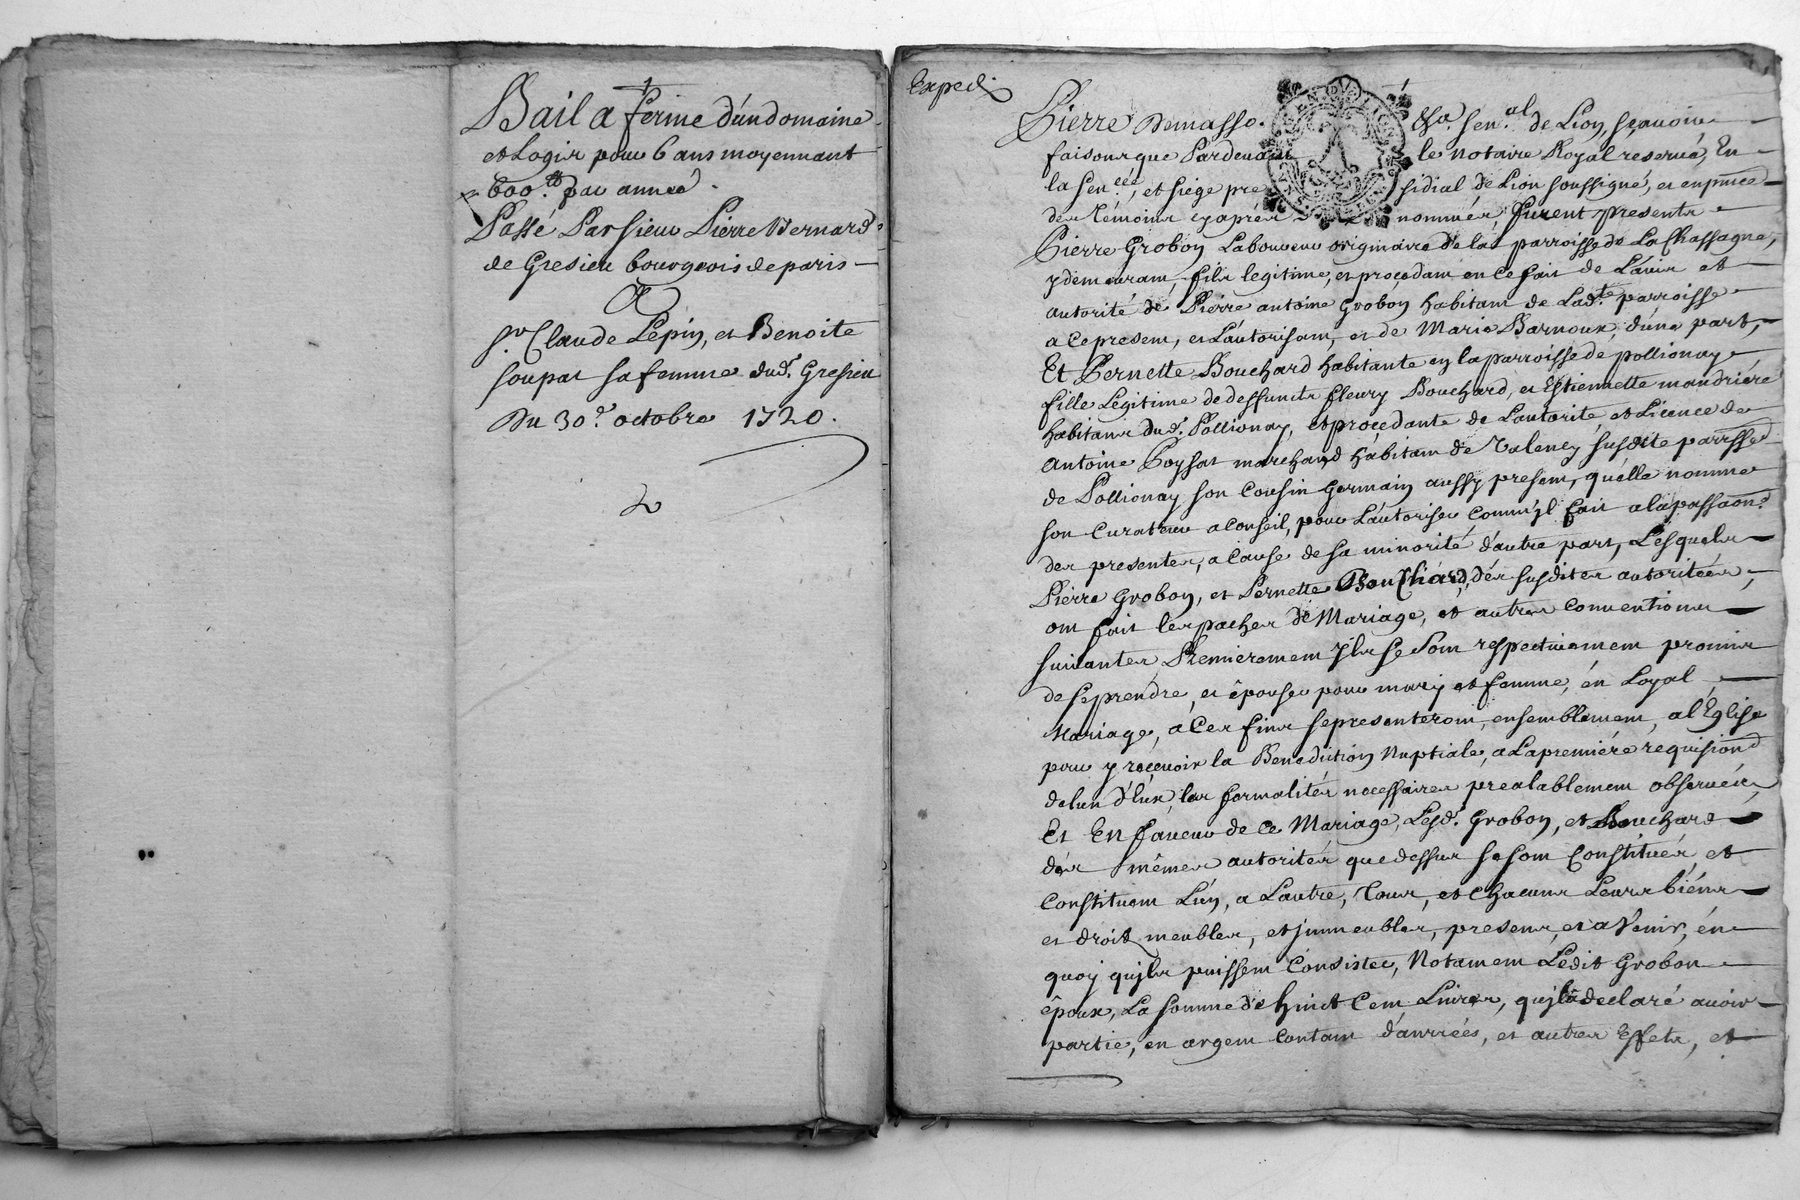 Bail a ferme d'un domaine
et Logis pour 6 ans moyennant
600.ᵗᵗ par année.
Passé Par sieur Pierre Bernard
de Gresieu bourgeois de paris
A
sʳ. Claude Lepin, et Benoite
soupat sa femme dud. Gresieu
Du 30.ᵉ octobre 1720.
Expedi
Pierre Demasso. &ᵃ. Sen.ᵃˡ de Lion, sçavoir
faisons que Pardevant le notaire Royal reservé, En
la Sen.ᶜéᵉ, et siége presidial de Lion soussigné, et en pnce
des témoins cyaprés nommés furent presents
Pierre Grobon Laboureur originaire de la parroisse de La Chassagne,
y demeurant, fils legitime, et proçedant en ce fait de L'avis et
autorité de Pierre antoine Grobon habitant de Lad.ᵗᵉ parroisse
a ce present, et L'autorisant, et de Marie Barnoux, d'une part,
Et Pernette Bouchard habitante en la parroisse de pollionay
fille Legitime de deffuncts fleury Bouchard, et Estiennette mandriére
habitans dud. Pollionay, et proçedante de L'autorité et Licence de
antoine Poysat marchand habitant de Valency susdite parrsse
de Pollionay son Cousin Germain aussy present, qu'elle nomme
son Curateur a Conseil, pour L'autoriser comm'jl fait a la passaon.
des presentes, a Cause de sa minorité d'autre part, Lesquels
Pierre Grobon, et Pernette Bouchard, des susdites autoritées,
ont fait les paches de Mariage, et autres Conventions
suivantes Premierement jls se sont respectivement promis
de se prendre, et épouser pour mary et femme, en Loyal
Mariage, a Ces fins se presenteront, ensemblement, a l'Eglise
pour y recevoir la Benediction Nuptiale, a La premiére requision
de lun d'eux, les formalités necessaires prealablement observées,
Et En faveur de ce Mariage, Lesd. Grobon, et Bouchard
des mêmes autorités que dessus se sont Constitués, et
Constituent L'un, a L'autre, Tous, et Chacuns Leurs biéns
et droit meubles, et jmmeubles, presens, et a Venir, én
quoy qu'jls puissent Consister, Notament Ledit Grobon
époux, La somme de huict Cent Livres, qu'jl a declaré avoir
partie, en argent Contant d'anrrées, et autres Effets, et